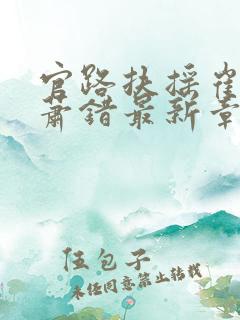 官路扶摇崔
肃错最新章
伍包子
未经同意禁止转载